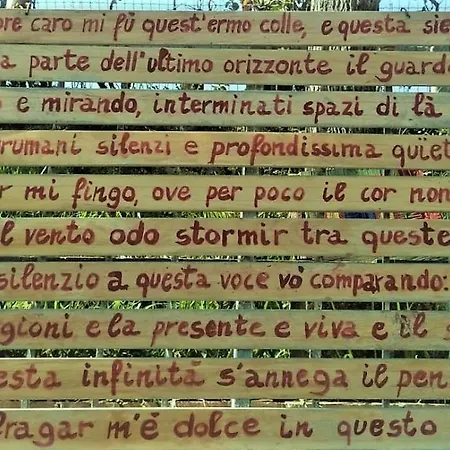 re caro mi fù quest'ermo colle, e questa sie
a parte dell'ultimo orizzonte il guard
e mirando, interminati spazi di là
rumani silenzi e profondissima quiet
r mi fingo, ove per poco il cor non
l vento odo stormir tra queste
silenzio a questa voce vò comparando:
gioni e la presente e viva e il s
esta infinità s'annega il pen
fragar m'è dolce in questo